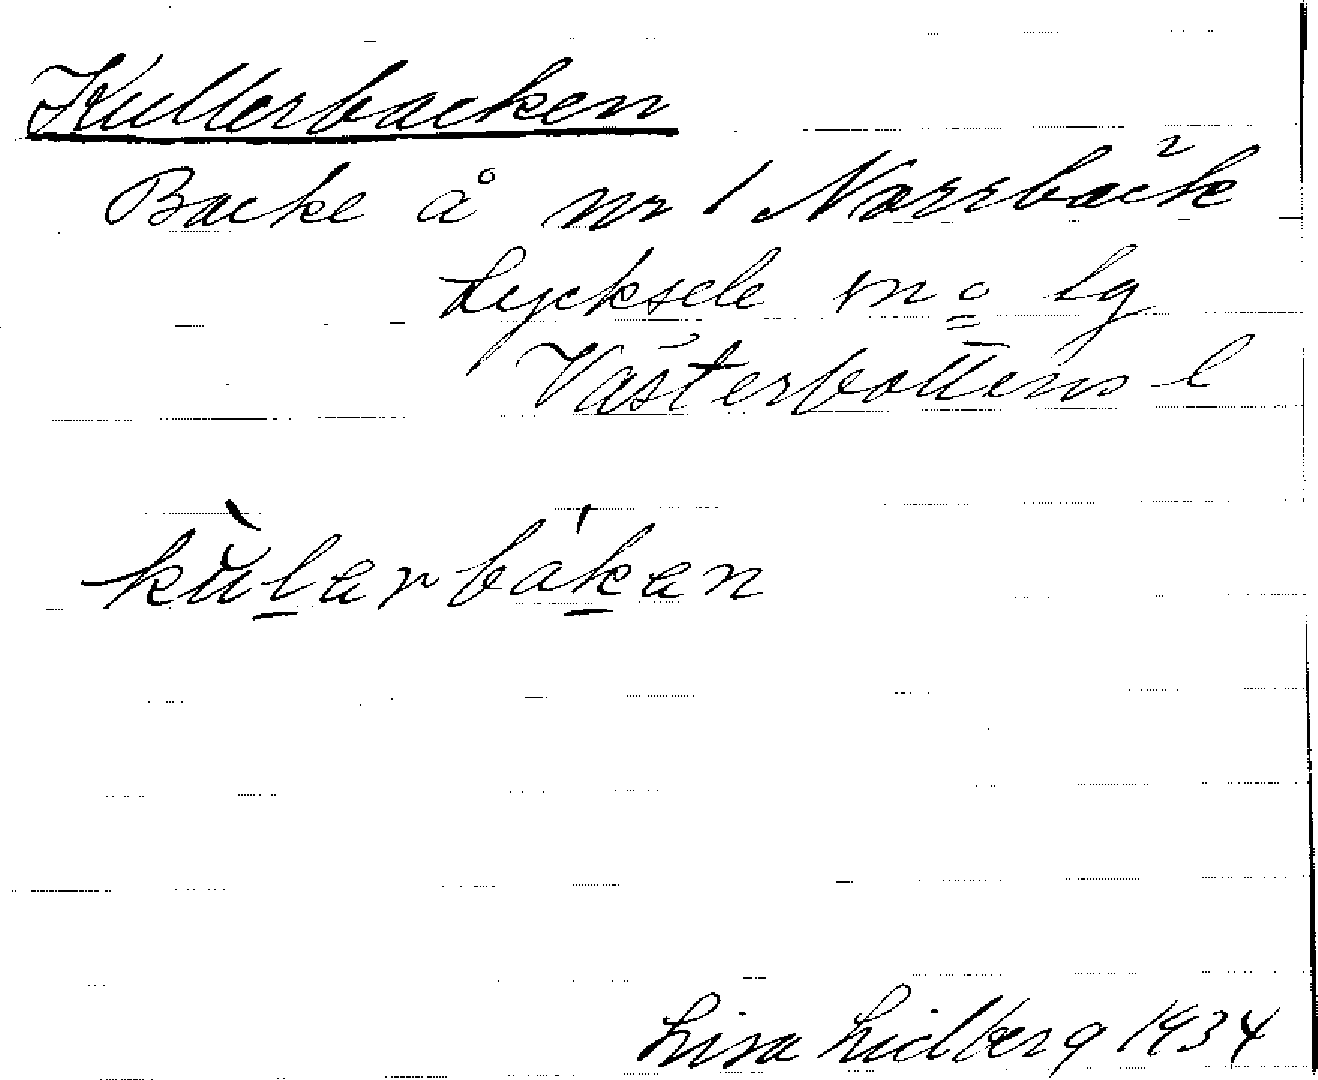 Kullerbacken
Backe å nr 1 Norrbäck
Lycksele m o lg
Västerbottens l
kùlarbákan
Lisa Lidberg 1934